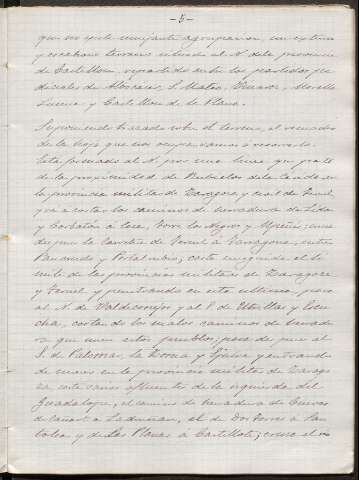 - 5 -
que no existe semejante agrupacion un extenso
y escabroso terreno situado al N. de la provincia
de Castellon, repartido entre los partidos ju-
diciales de Albocacer, S. Mateo, Vinaroz, Morella
Lucena y Castellon de la Plana.
Suponiendo trazado sobre el terreno, el recuadro
de la hoja que nos ocupa, vamos á recorrerlo.
Esta formado al N. por una linea que parte
de la proximidad de
la provincia militar de Zaragoza y civil de Teruel,
y va á cortar los caminos de herradura de Lidon
y Corbatón á Cosa, Torre los Negros y
despues la carretera de Teruel á Zaragoza, entre
Pancrudo y Portalrubio; corta enseguida el li-
mite de las provincias militares de Zaragoza
y Teruel y penetrando en esta ultima, pasa
al N. de Valdeconejos y al S. de Utrillas y Escu-
cha, cortando los malos caminos de herradu-
ra que unen estos pueblos; pasa despues al
S. de Palomar, la Zoma y Ejulve y entrando
de nuevo en la provincia militar de Zarago-
za, corta varios afluentes de la izquierda del
Guadalope, el camino de herradura de Cuevas
de Cañart á Ladruñan, el de Dos Torres á San-
tolea y de Las Planas á Castellote; cruza el rio